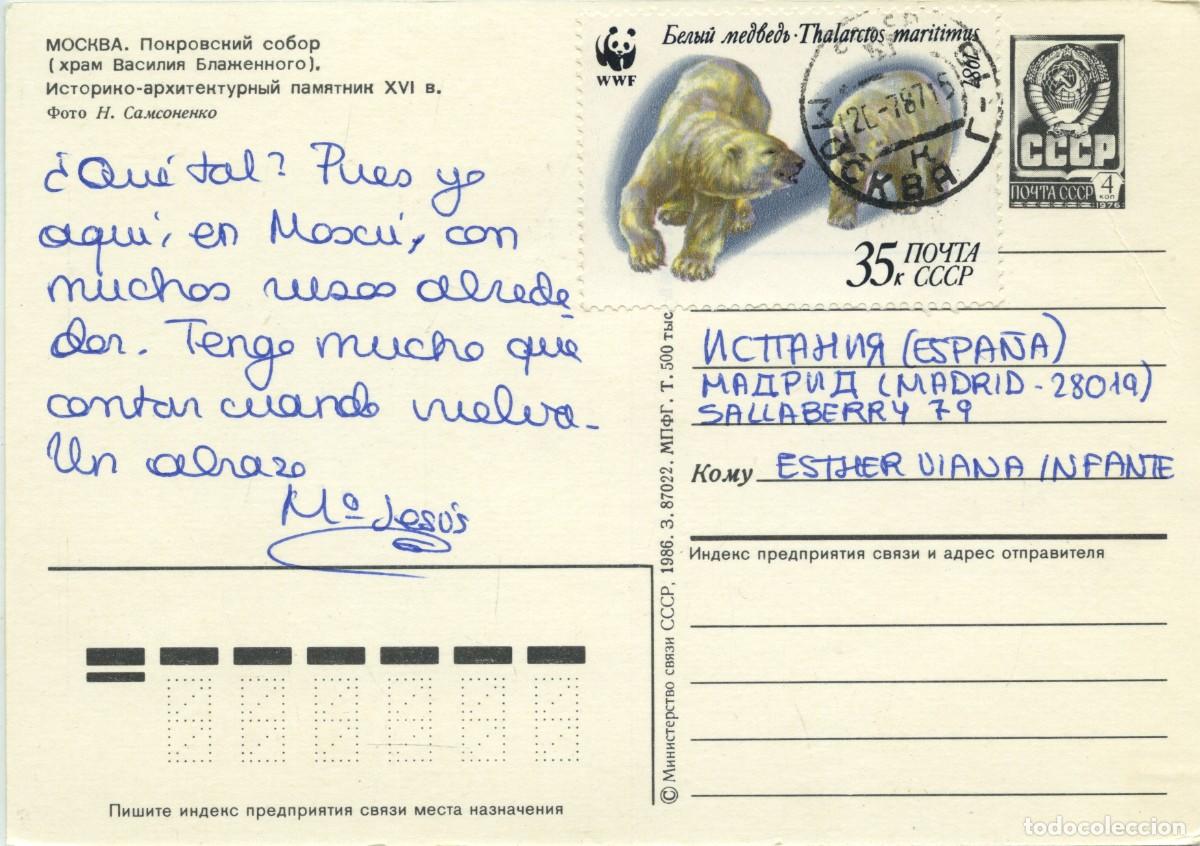 МОСКВА. Покровский собор
(храм Василия Блаженного).
Историко-архитектурный памятник XVI в.
Фото Н. Самсоненко
¿Qué tal? Pues yo
aquí, en Moscú, con
muchos rusos alrede-
dor. Tengo mucho que
contar cuando vuelva.
Un abrazo
Mª Jesús
WWF
Белый медведь · Thalarctos maritimus
35к ПОЧТА
СССР
МОСКВА
СССР
ПОЧТА СССР 4
КОП
1976
ИСПАНИЯ (ESPAÑA)
МАДРИД (MADRID - 28019)
SALLABERRY 79
Кому ESTHER VIANA INFANTE
Индекс предприятия связи и адрес отправителя
© Министерство связи СССР, 1986. З. 87022. МПФГ. Т. 500 тыс
Пишите индекс предприятия связи места назначения
todocoleccion